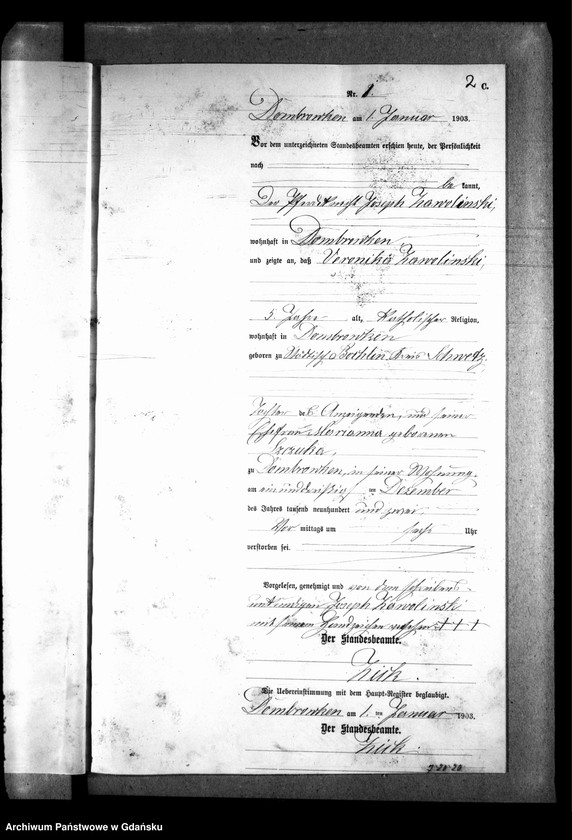 2 C.
Nr. 1.
Dombrowken am 1. Januar 1903.
Vor dem unterzeichneten Standesbeamten erschien heute, der Persönlichkeit
nach
be kannt,
Der Pferdeknecht Joseph Zawolinski,
wohnhaft in Dombrowken
und zeigte an, daß Veronika Zawolinski,
5 Jahre alt, katholischer Religion,
wohnhaft in Dombrowken
geboren zu Kreis Schwetz,
Tochter des Anzeigenden, und seiner
Ehefrau Marianna geborenen
Szczuka,
zu Dombrowken, in seiner Wohnung
am einunddreißig ten Dezember
des Jahres tausend neunhundert und zwei
Vor mittags um sechs Uhr
verstorben sei.
Vorgelesen, genehmigt und von dem schreibens-
unkundigen Joseph Zawolinski
mit seinem Handzeichen versehen +++
Der Standesbeamte.
Zirk.
Die Uebereinstimmung mit dem Haupt-Register beglaubigt.
Dombrowken am 1. ten Januar 1903.
Der Standesbeamte.
Zirk.
Archiwum Państwowe w Gdańsku